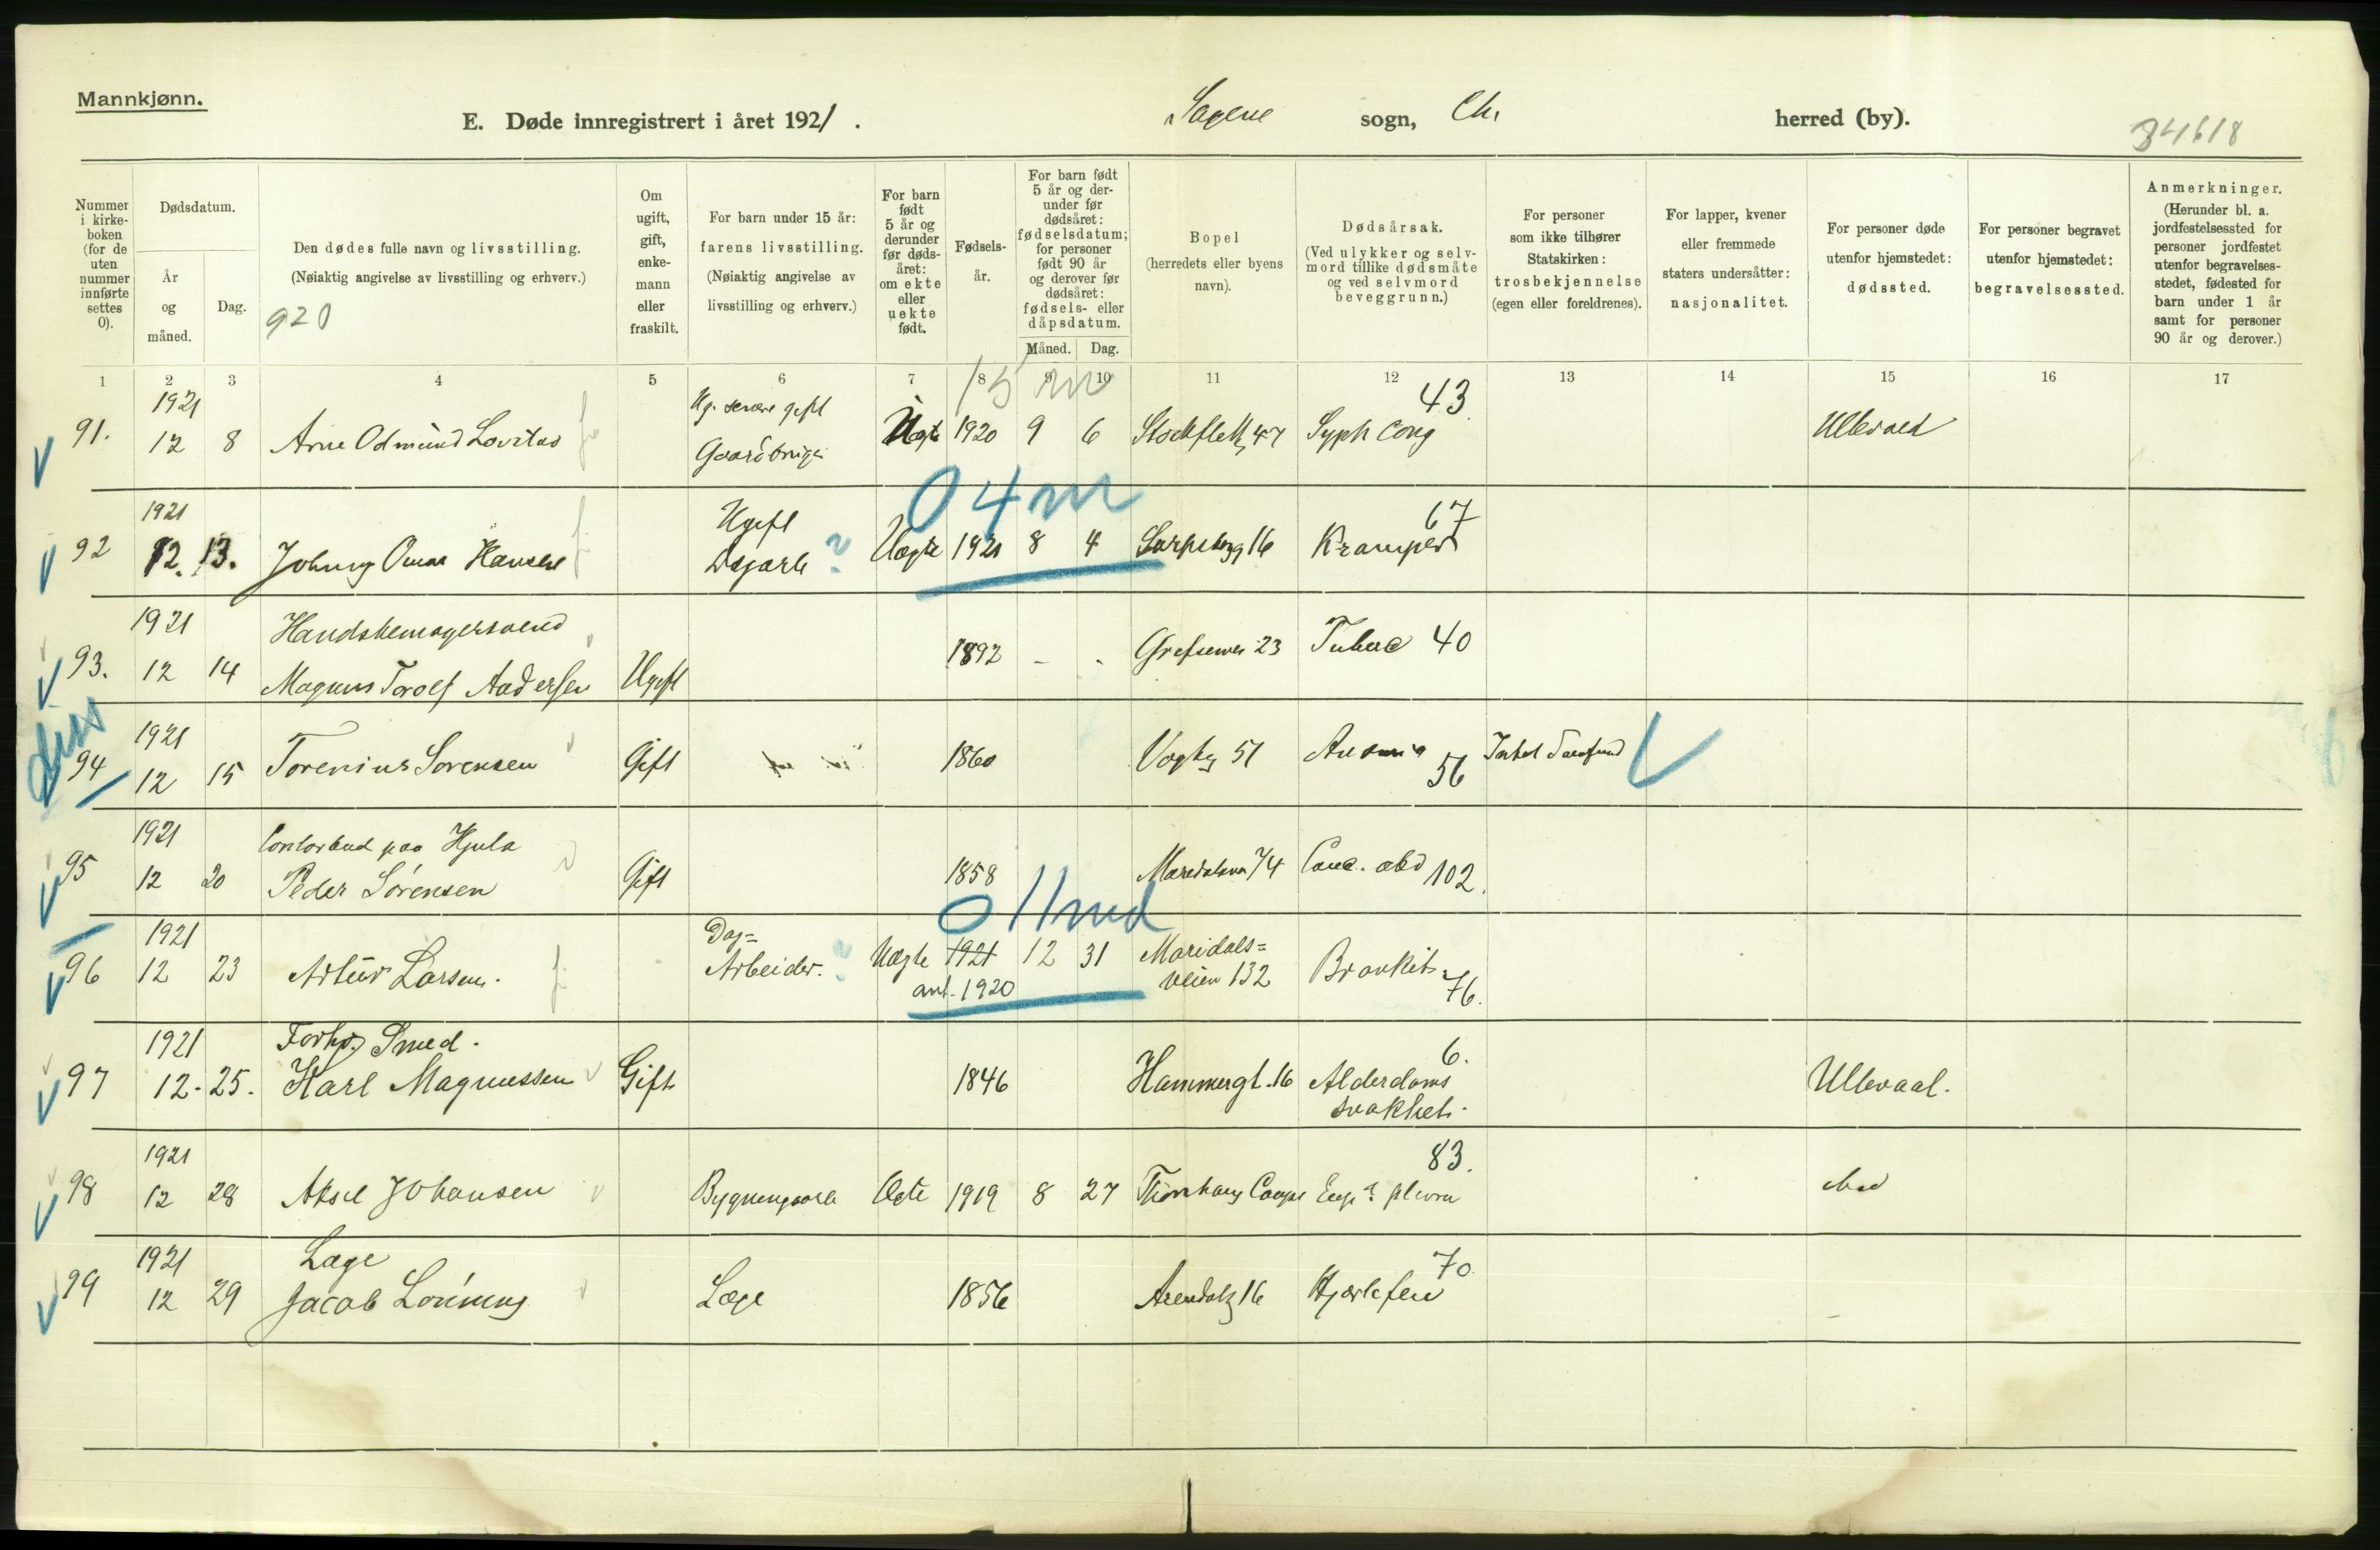 Mannkjønn.
E. Døde innregistrert i året 1921. Sagene sogn, Chr herred (by).
34618
Nummer i kirkeboken (for de uten nummer innførte settes 0).
Dødsdatum.
År og måned.
Dag.
Den dødes fulle navn og livsstilling.
(Nøiaktig angivelse av livsstilling og erhverv.)
920
Om ugift, gift, enkemann eller fraskilt.
For barn under 15 år: farens livsstilling.
(Nøiaktig angivelse av livsstilling og erhverv.)
For barn født 5 år og derunder før dødsåret: om ekte eller uekte født.
Fødselsår.
For barn født 5 år og derunder før dødsåret: fødselsdatum; for personer født 90 år og derover før dødsåret: fødsels- eller dåpsdatum.
Måned. Dag.
Bopel
(herredets eller byens navn).
Dødsårsak.
(Ved ulykker og selvmord tillike dødsmåte og ved selvmord beveggrunn.)
For personer som ikke tilhører Statskirken: trosbekjennelse (egen eller foreldrenes).
For lapper, kvener eller fremmede staters undersåtter: nasjonalitet.
For personer døde utenfor hjemstedet: dødssted.
For personer begravet utenfor hjemstedet: begravelsessted.
Anmerkninger.
(Herunder bl. a. jordfestelsessted for personer jordfestet utenfor begravelsesstedet, fødested for barn under 1 år samt for personer 90 år og derover.)
1 2 3 4 5 6 7 8 9 10 11 12 13 14 15 16 17
15 m
1921 Ug. senere gift 43
91. 12 8 Arne Odmund Uegte 1920 9 6 Syph Cong Ullevaal
0 4 m
1921 Ugift 67
92 12. 13. Johnny Omar Hansen Uegte 1921 8 4 Sarpsborg 16 Kramper
1921 Handskemagersvend
93. 12 14 Magnus Torolf Andersen Ugift 1892 - - Grefsenvei 23 Tuberc 40
diss
1921
94 12 15 Torenius Sorensen Gift 1860 Vogtsg 51 56
1921 Contorbud paa Hjula
95 12 20 Peder Sörensen Gift 1858 Maridalsvn 74 Canc. abd 102.
0 11 md
1921 Dag=
96 12 23 Artur Larsen. Arbeider. Uægte 1921 12 31 Maridals=
ant. 1920 veien 132 Bronkit. 76.
1921 Forhv. Smed. 6.
97 12. 25. Karl Magnussen Gift 1846 Hammergt. 16 Alderdoms
svakhet. Ullevaal.
1921 83.
98 12 28 Aksel Johansen Ægte 1919 8 27 plevra
1921 Læge 70.
99 12 29 Jacob Læge 1856 Arendalsg 16 Hjertefeil